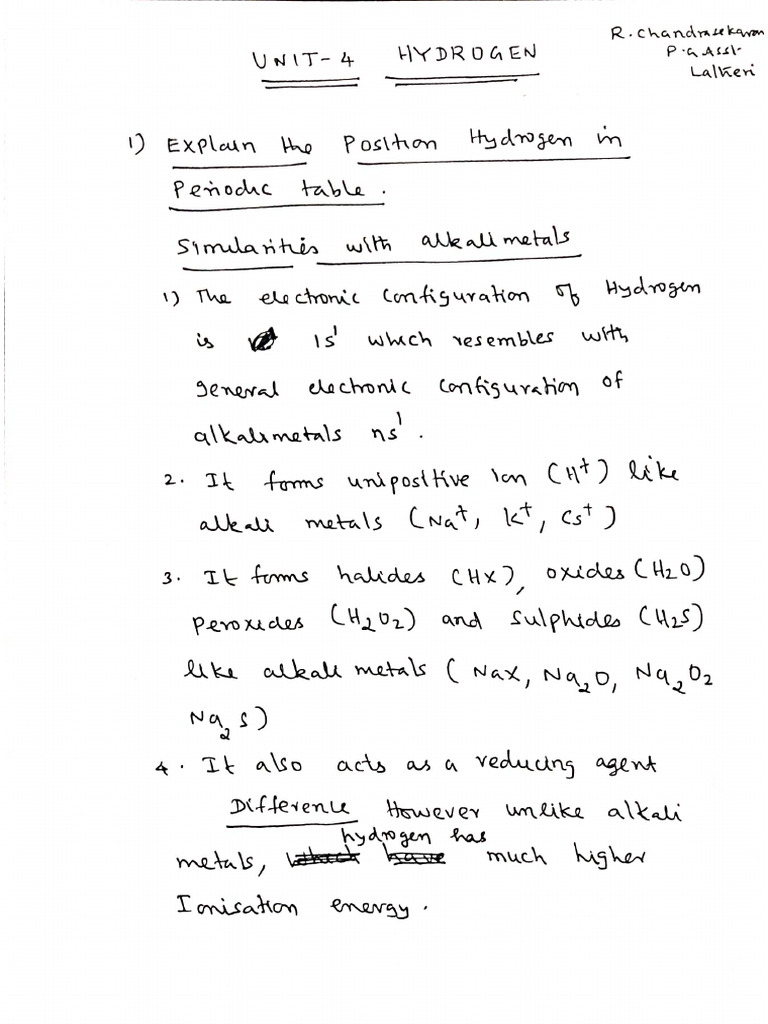 R. Chandrasekaran
P.G Asst-
Lalkeri
UNIT-4 HYDROGEN
1) Explain the Position Hydrogen in
Periodic table.
Similarities with alkali metals
1) The electronic configuration of Hydrogen
is 1s¹ which resembles with
general electronic configuration of
alkali metals ns¹.
2. It forms unipositive ion (H⁺) like
alkali metals (Na⁺, K⁺, Cs⁺)
3. It forms halides (HX), oxides (H2O)
Peroxides (H₂O₂) and Sulphides (H2S)
like alkali metals (NaX, Na₂O, Na₂O₂
Na₂S)
4. It also acts as a reducing agent
Difference However unlike alkali
metals, hydrogen has much higher
Ionisation energy.